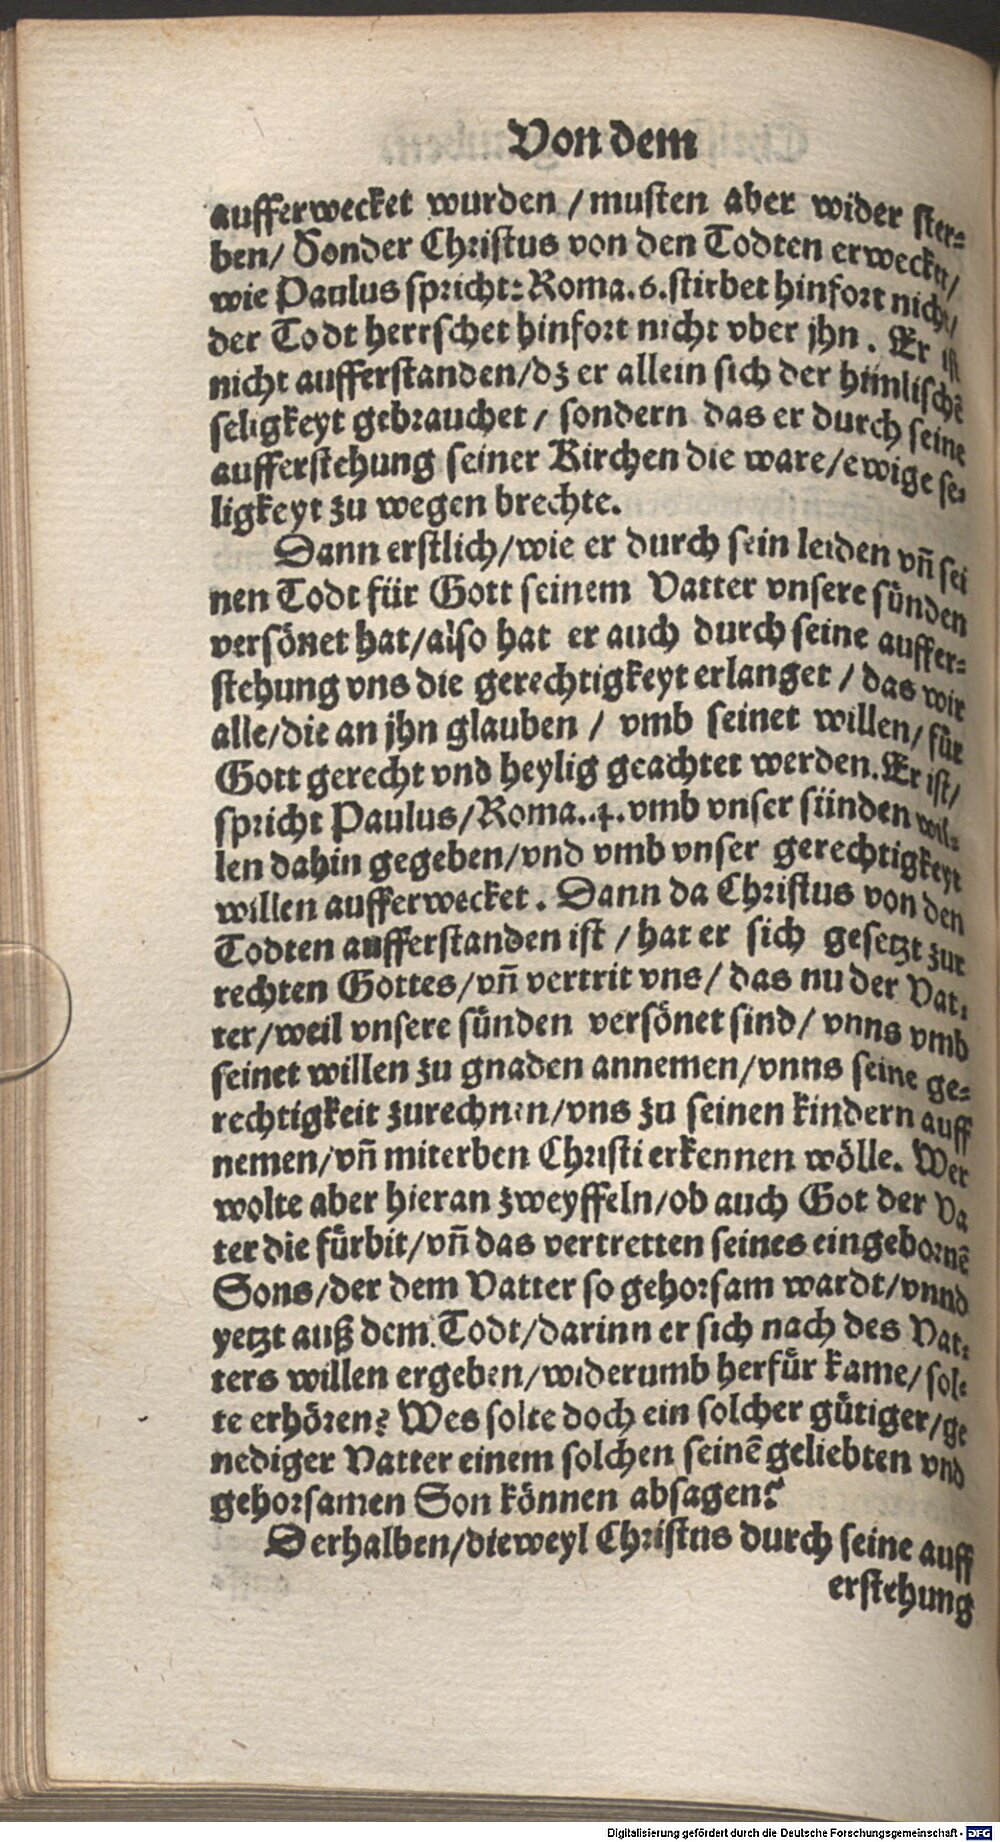 Von dem
aufferwecket wurden / musten aber wider ster⸗
ben/ Sonder Christus von den Todten erwecket/
wie Paulus spricht: Roma. 6. stirbet hinfort nicht/
der Todt herrschet hinfort nicht vber jhn. Er ist
nicht aufferstanden/dz er allein sich der himlischē
seligkeyt gebrauchet / sondern das er durch seine
aufferstehung seiner Kirchen die ware/ewige se⸗
ligkeyt zu wegen brechte.
Dann erstlich/wie er durch sein leiden vn̄ sei
nen Todt für Gott seinem Vatter vnsere sünden
versönet hat/also hat er auch durch seine auffer⸗
stehung vns die gerechtigkeyt erlanget / das wir
alle/die an jhn glauben / vmb seinet willen/ für
Gott gerecht vnd heylig geachtet werden. Er ist/
spricht Paulus/Roma. 4. vmb vnser sünden wil⸗
len dahin gegeben/vnd vmb vnser gerechtigkeyt
willen aufferwecket. Dann da Christus von den
Todten aufferstanden ist / hat er sich gesetzt zur
rechten Gottes/vn̄ vertrit vns/ das nu der Vat⸗
ter/weil vnsere sünden versönet sind/ vnns vmb
seinet willen zu gnaden annemen/vnns seine ge⸗
rechtigkeit zurechnen/vns zu seinen kindern auff
nemen/vn̄ miterben Christi erkennen wölle. Wer
wolte aber hieran zweyffeln/ob auch Got der Va
ter die fürbit/vn̄ das vertretten seines eingebornē
Sons/der dem Vatter so gehorsam wardt/vnnd
yetzt auß dem Todt/darinn er sich nach des Vat⸗
ters willen ergeben/widerumb herfür kame/ sol⸗
te erhören? Wes solte doch ein solcher gütiger/ge
nediger Vatter einem solchen seinē geliebten vnd
gehorsamen Son können absagen?
Derhalben/dieweyl Christns durch seine auff
erstehung
Digitalisierung gefördert durch die Deutsche Forschungsgemeinschaft - DFG